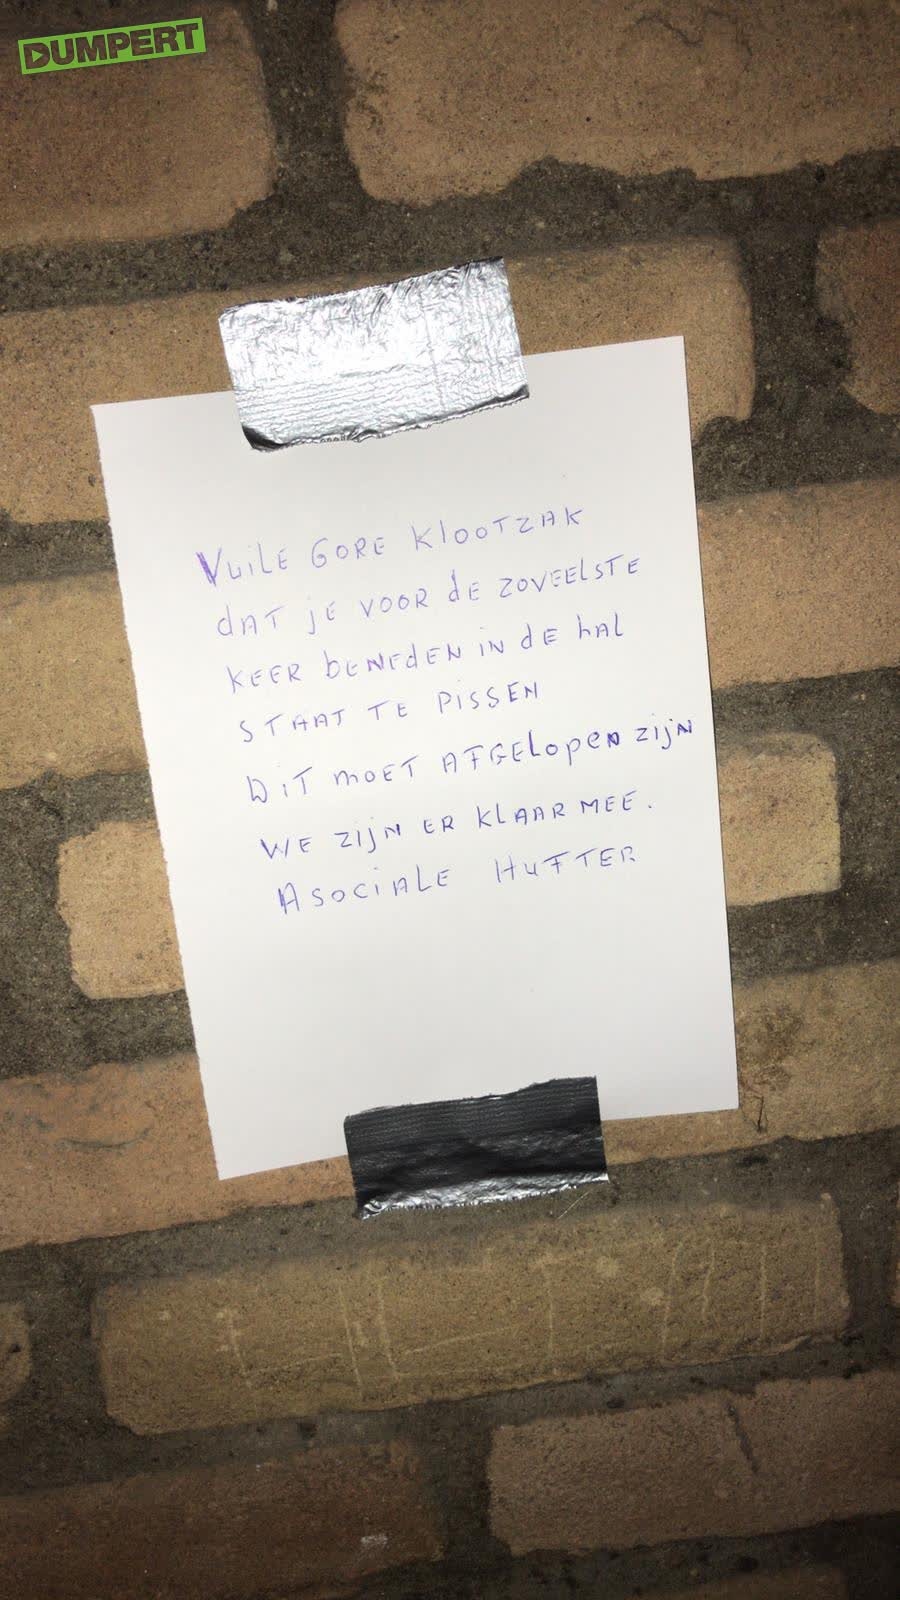 DUMPERT
VUILE GORE KLOOTZAK
dAT jE VOOR dE ZOVEELSTE
KEER bENEdEN IN dE hAL
STAAT TE PISSEN
DiT MOET AFGELOPEN ZIJN
WE ZIJN ER KLAAR MEE.
ASOCIALE HUFTER